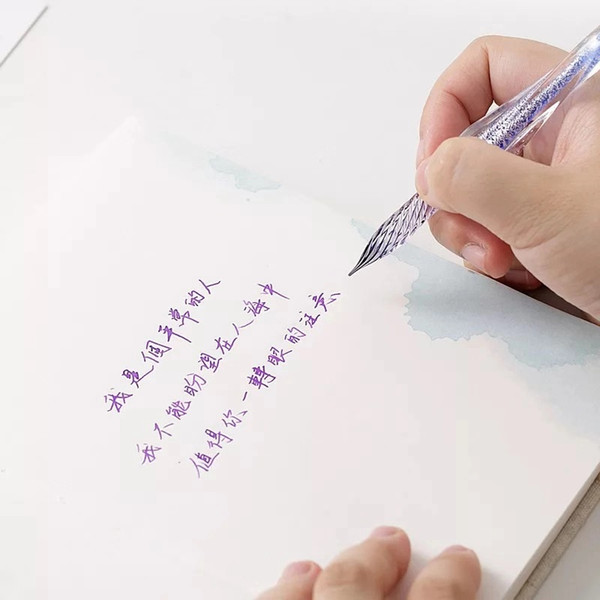 我是個平常的人
我不能盼望在人海中
值得你一轉眼的注意